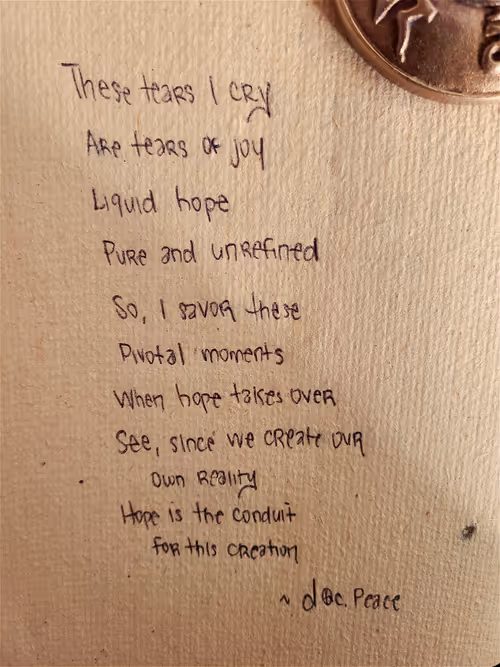 These tears I cry
Are tears of joy
Liquid hope
Pure and unrefined
So, I savor these
Pivotal moments
When hope takes over
See, since we create our
own reality
Hope is the conduit
for this creation
~ d@c. Peace